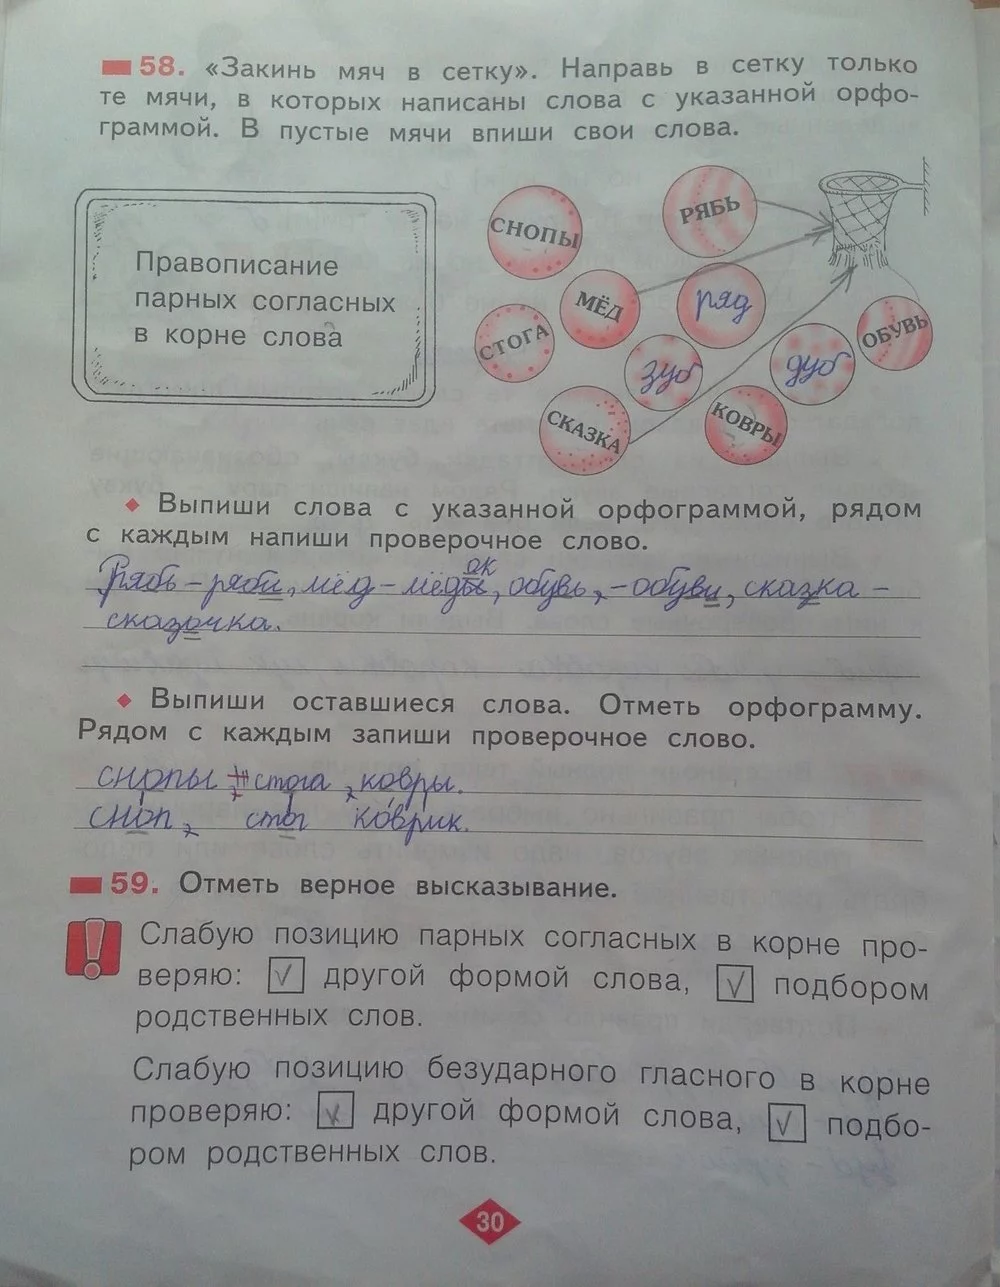 58. «Закинь мяч в сетку». Направь в сетку только
те мячи, в которых написаны слова с указанной орфо-
граммой. В пустые мячи впиши свои слова.
Правописание
парных согласных
в корне слова
СНОПЫ
РЯБЬ
МЁД
ряд
СТОГА
зуб
дуб
ОБУВЬ
СКАЗКА
КОВРЫ
Выпиши слова с указанной орфограммой, рядом
с каждым напиши проверочное слово.
ок
Рябь – ряби, мёд – мёды, обувь, – обуви, сказка –
сказочка.
Выпиши оставшиеся слова. Отметь орфограмму.
Рядом с каждым запиши проверочное слово.
снопы, стога, ковры.
сноп, стог коврик.
59. Отметь верное высказывание.
Слабую позицию парных согласных в корне про-
веряю: √ другой формой слова, √ подбором
родственных слов.
Слабую позицию безударного гласного в корне
проверяю: √ другой формой слова, √ подбо-
ром родственных слов.
30